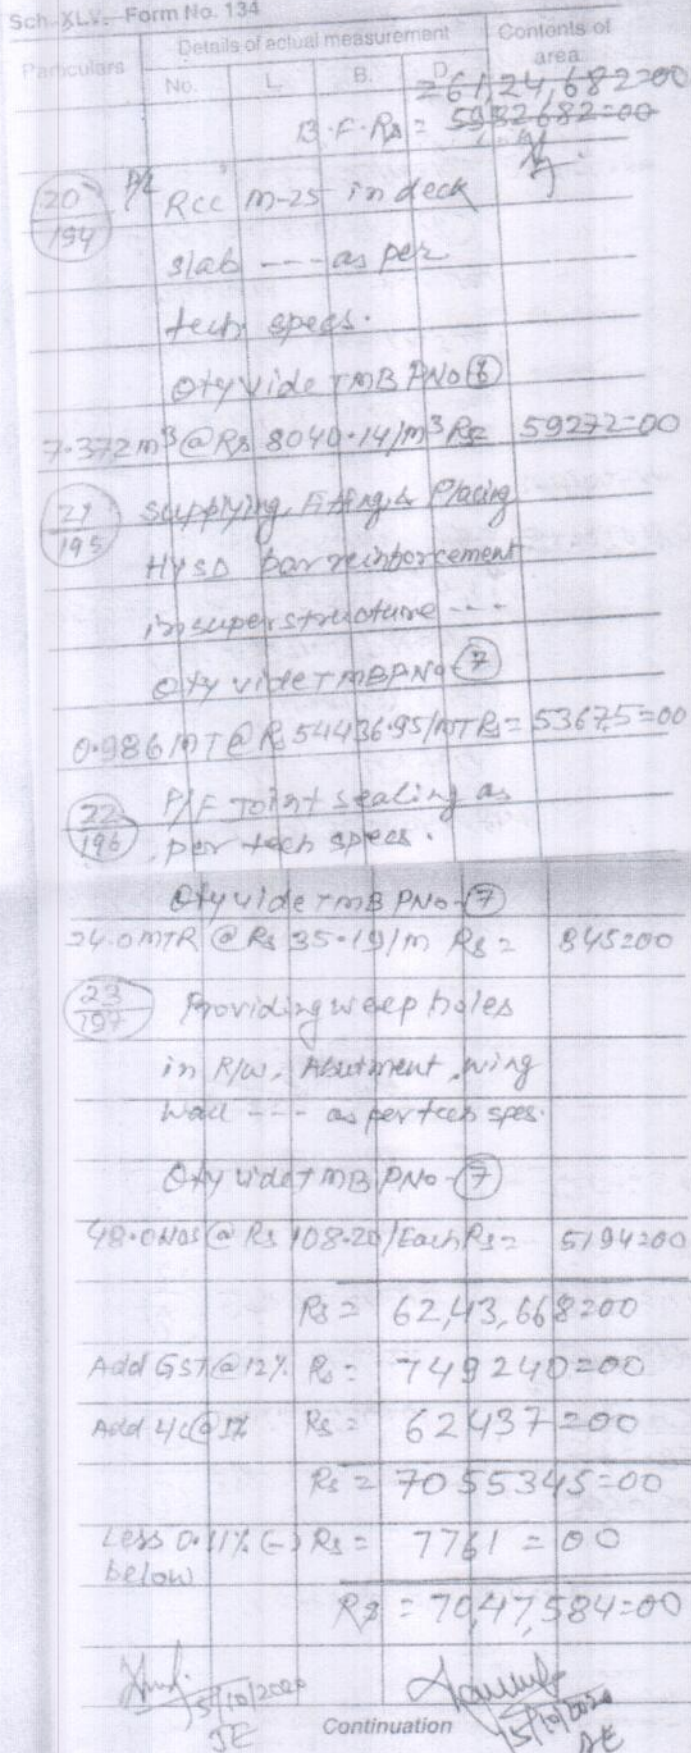 Sch. XLV.-Form No. 134
Particulars Details of actual measurement Contents of area
No. L. B. D.
=61,24,682=00
B.F. Rs = 5932682=00
20/194 P/L RCC M-25 in deck
slab --- as per
tech specs.
Qty vide TMB PNo (6)
7.372 m³ @ Rs 8040.14/m³ Rs= 59272=00
21/195 Supplying, Fitting & Placing
HYSD bar reinforcement
in superstructure ---
Qty vide TMB PNo (7)
0.986 MT @ Rs 54436.95/MT Rs= 53675=00
22/196 P/F Joint sealing as
per tech specs.
Qty vide TMB PNo-(7)
24.0 MTR @ Rs 35.19/m Rs = 845=00
23/197 Providing weep holes
in R/W, Abutment, wing
wall --- as per tech spes.
Qty vide TMB PNo-(7)
48.0 Nos @ Rs 108.20/Each Rs= 5194=00
Rs = 62,43,668=00
Add GST @ 12% Rs = 749240=00
Add L/c @ 1% Rs = 62437=00
Rs = 7055345=00
Less 0.11% (-) Rs = 7761=00
below
Rs = 70,47,584=00
5/10/2020
JE
15/10/2020
AE
Continuation